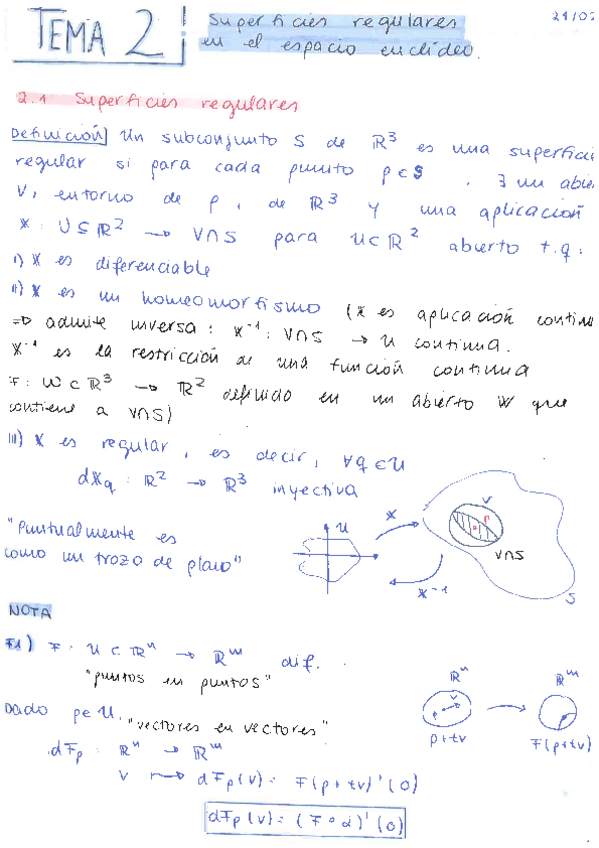 TEMA 2
Superficies regulares
en el espacio euclídeo.
21/02
2.1 Superficies regulares
Definición] Un subconjunto S de ℝ³ es una superficie
regular si para cada punto p∈S, ∃ un abie
V, entorno de p, de ℝ³ y una aplicación
X: U⊆ℝ² → V∩S para U⊂ℝ² abierto t.q:
i) X es diferenciable
ii) X es un homeomorfismo (X es aplicación contin
⇒ admite inversa: X⁻¹: V∩S → U continua.
X⁻¹ es la restricción de una función continua
F: W⊂ℝ³ → ℝ² definido en un abierto W que
contiene a V∩S)
iii) X es regular, es decir, ∀q∈U
dXq: ℝ² → ℝ³ inyectiva
"Puntualmente es
como un trozo de plano"
U
X
X⁻¹
V
p
V∩S
S
NOTA
F1) F: U⊂ℝⁿ → ℝᵐ dif.
"puntos en puntos"
Dado p∈U. "vectores en vectores"
dFp: ℝⁿ → ℝᵐ
v ↦ dFp(v): F(p+tv)'(0)
dFp(v)=(F∘α)'(0)
ℝⁿ
v
p+tv
ℝᵐ
F(p+tv)